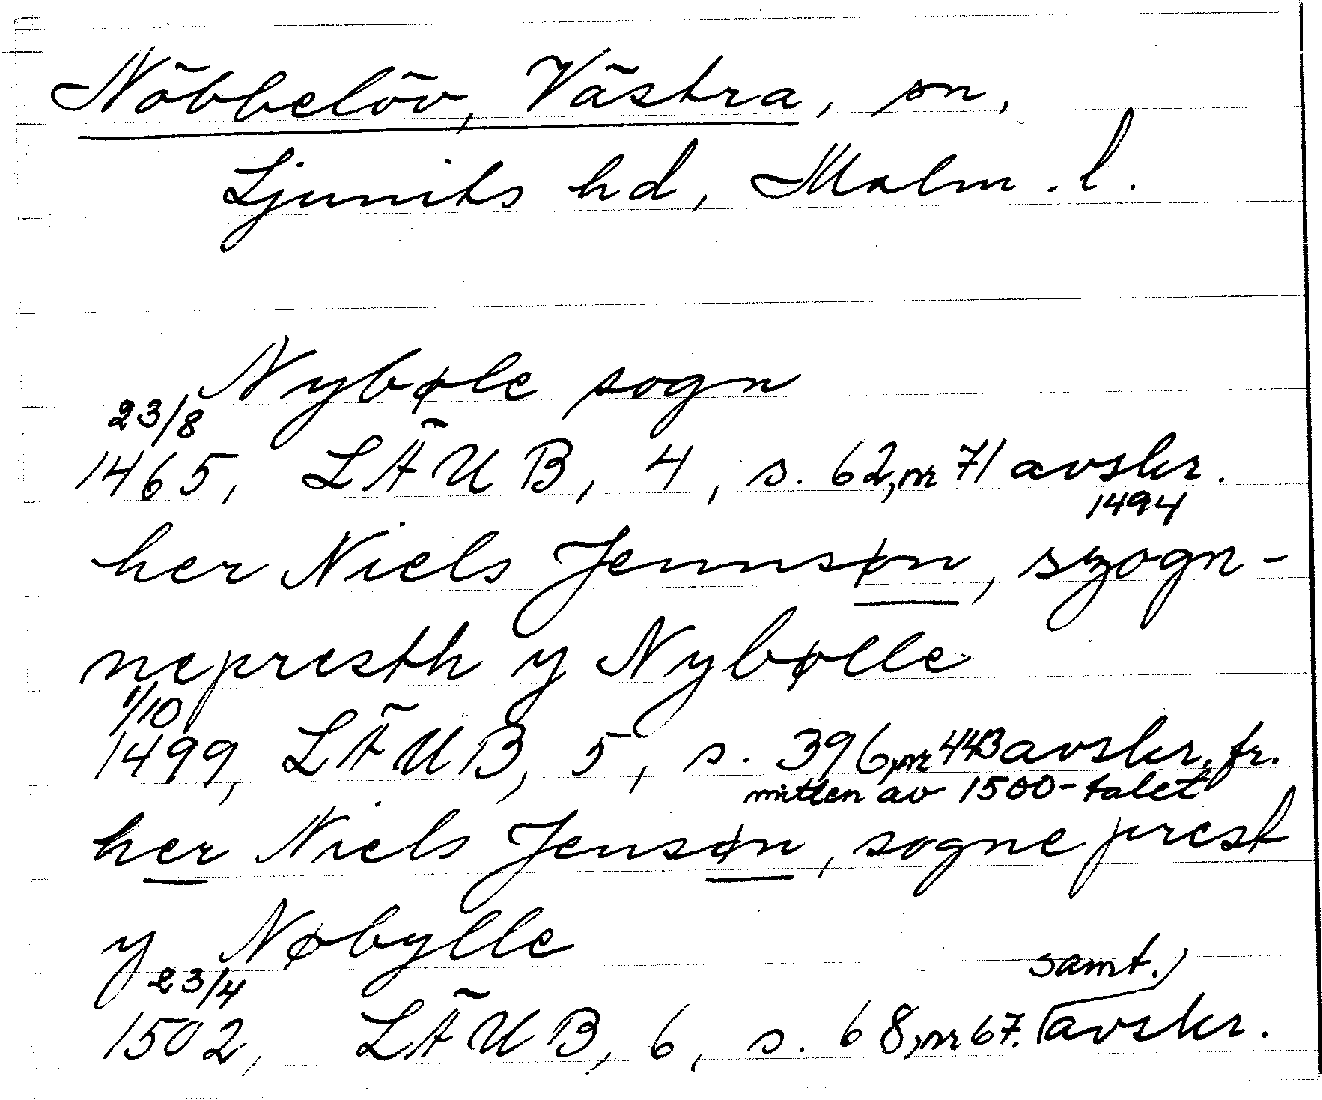 Nöbbelöv, Västra, sn,
Ljunits hd, Malm. l.
Nybøle sogn
23/8
1465, LÄUB, 4, s. 62, nr 71 avskr.
1494
her Niels Jennsøn, szogn-
nepresth y Nybølle
1/10
1499, LÄUB, 5, s. 396, nr 443 avskr. fr.
mitten av 1500-talet
her Niels Jensøn, sogneprest
y Nøbylle
samt.
23/4
1502, LÄUB, 6, s. 68, nr 67. avskr.